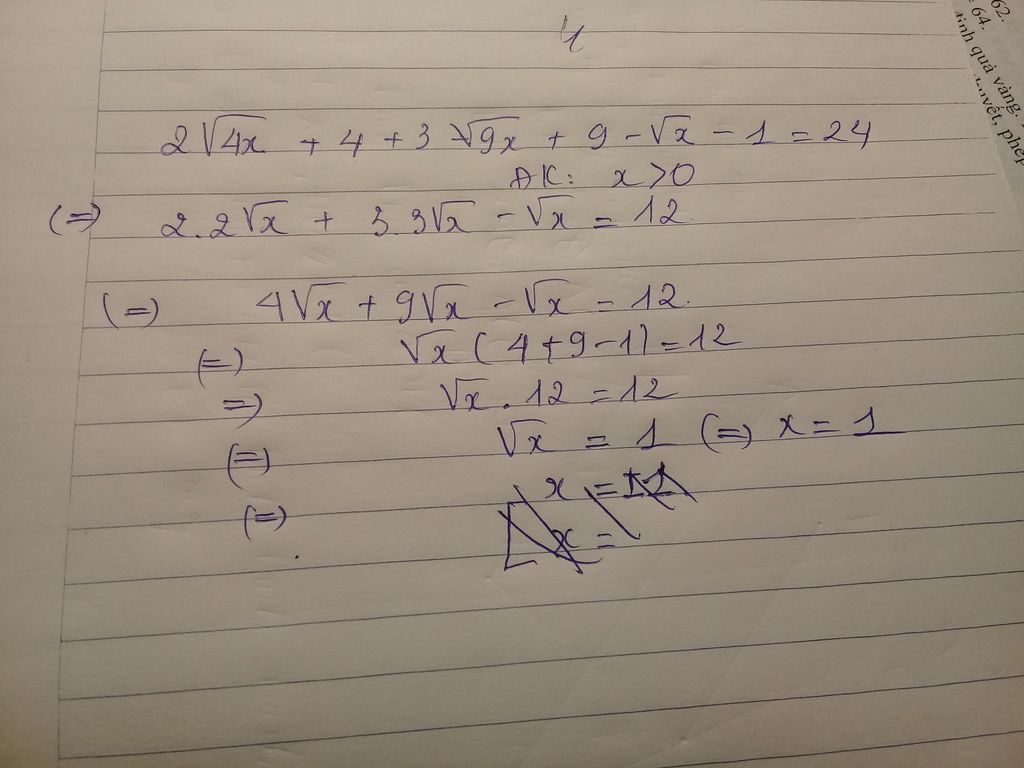 4
2√4x + 4 + 3√9x + 9 - √x - 1 = 24
ĐK: x > 0
(=) 2.2√x + 3.3√x - √x = 12
(=) 4√x + 9√x - √x = 12.
(=) √x (4 + 9 - 1) = 12
=) √x . 12 = 12
(=) √x = 1 (=) x = 1
(=) x =
x =
62.
= 64.
tinh quả vàng,
phép